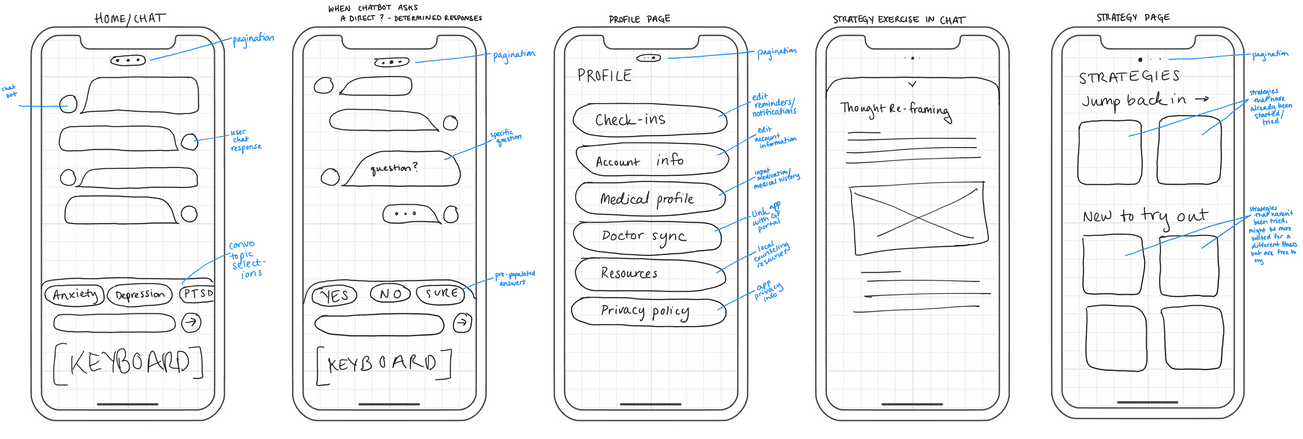 HOME/CHAT
pagination
chat
bot
user
chat
response
convo
topic
select-
ions
Anxiety
Depression
PTSD
[KEYBOARD]
WHEN CHATBOT ASKS
A DIRECT ? - DETERMINED RESPONSES
pagination
specific
question
question?
pre-populated
answers
YES
NO
SURE
[KEYBOARD]
PROFILE PAGE
pagination
PROFILE
Check-ins
edit
reminders/
notifications
Account info
edit
account
information
Medical profile
input
medication/
medical history
Doctor sync
link app
with GP
portal
Resources
local
counseling
resources
Privacy policy
app
privacy
info
STRATEGY EXERCISE IN CHAT
Thought Re-framing
STRATEGY PAGE
pagination
STRATEGIES
Jump back in →
strategies
that have
already been
started/
tried
New to try out
strategies
that haven't
been tried,
might be more
suited for a
different illness
but are free to
try